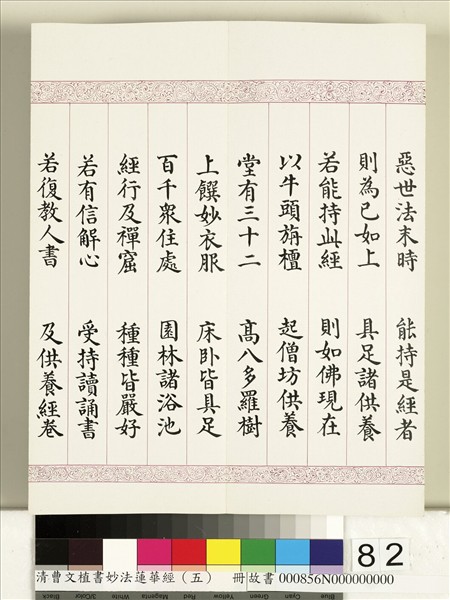 惡世法末時 能持是經者
則為已如上 具足諸供養
若能持此經 則如佛現在
以牛頭旃檀 起僧坊供養
堂有三十二 高八多羅樹
上饌妙衣服 床臥皆具足
百千衆住處 園林諸浴池
經行及禪窟 種種皆嚴好
若有信解心 受持讀誦書
若復教人書 及供養經卷
82
清曹文植書妙法蓮華經（五） 冊故書000856N000000000
Black 3/Color White Magenta Red Yellow Green Cyan Blue